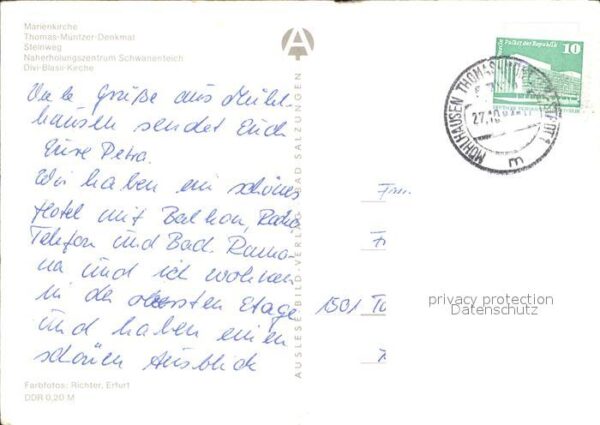 Marienkirche
Thomas-Müntzer-Denkmal
Steinweg
Naherholungszentrum Schwanenteich
Divi-Blasii-Kirche
Viele Grüße aus Mühl-
hausen sendet Euch
Eure Petra.
Wir haben ein schönes
Hotel mit Balkon, Radio
Telefon und Bad. Ramo-
na und ich wohnen
in der obersten Etage
und haben einen
schönen Ausblick
Farbfotos: Richter, Erfurt
DDR 0,20 M
AUSLESE-BILD-VERLAG BAD SALZUNGEN
A
Palast der Republik
10
MÜHLHAUSEN THOMAS
27.10
m
Fam.
1501
privacy protection
Datenschutz